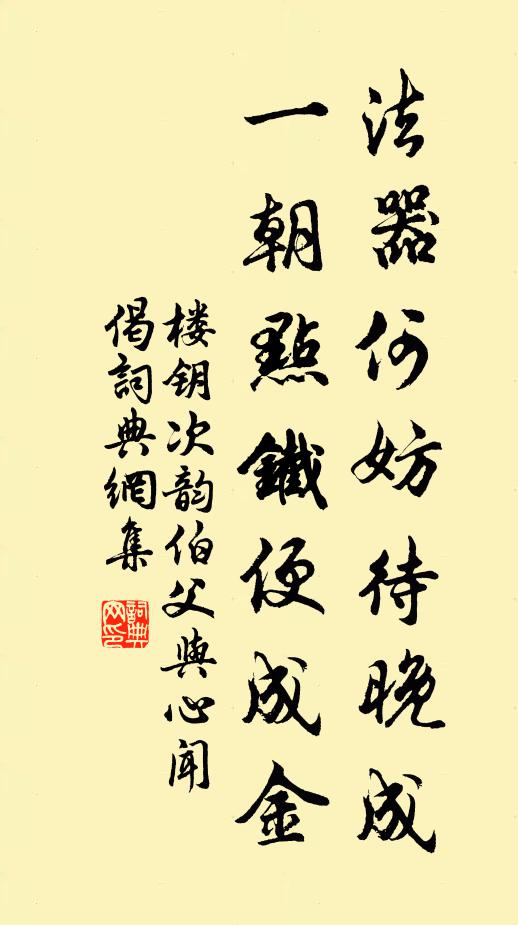 法器何妨待晚成
一朝點鐵便成金
楼钥次韵伯父與心闻
偈詞典網集
詞典網印